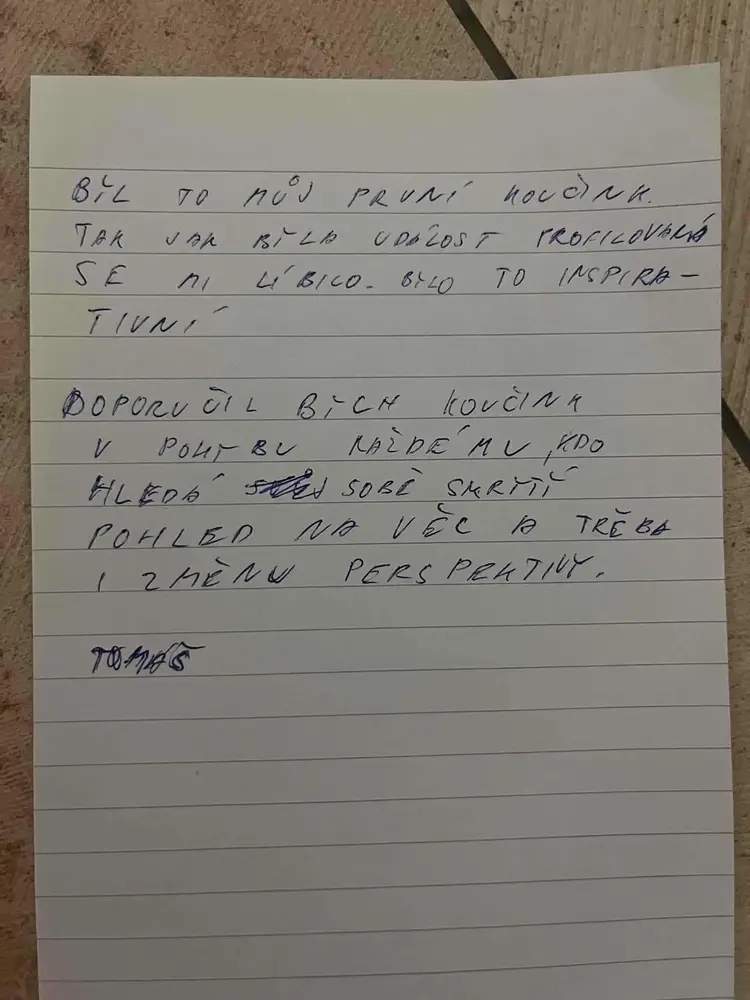 BYL TO MŮJ PRVNÍ KOUČINK.
TAK JAK BYLA UDÁLOST PROFILOVANÁ
SE MI LÍBILO. BYLO TO INSPIRA-
TIVNÍ
DOPORUČIL BYCH KOUČINK
V POHYBU KAŽDÉMU, KDO
HLEDÁ SOBĚ
POHLED NA VĚC A TŘEBA
I ZMĚNU PERSPEKTIVY.
TOMÁŠ